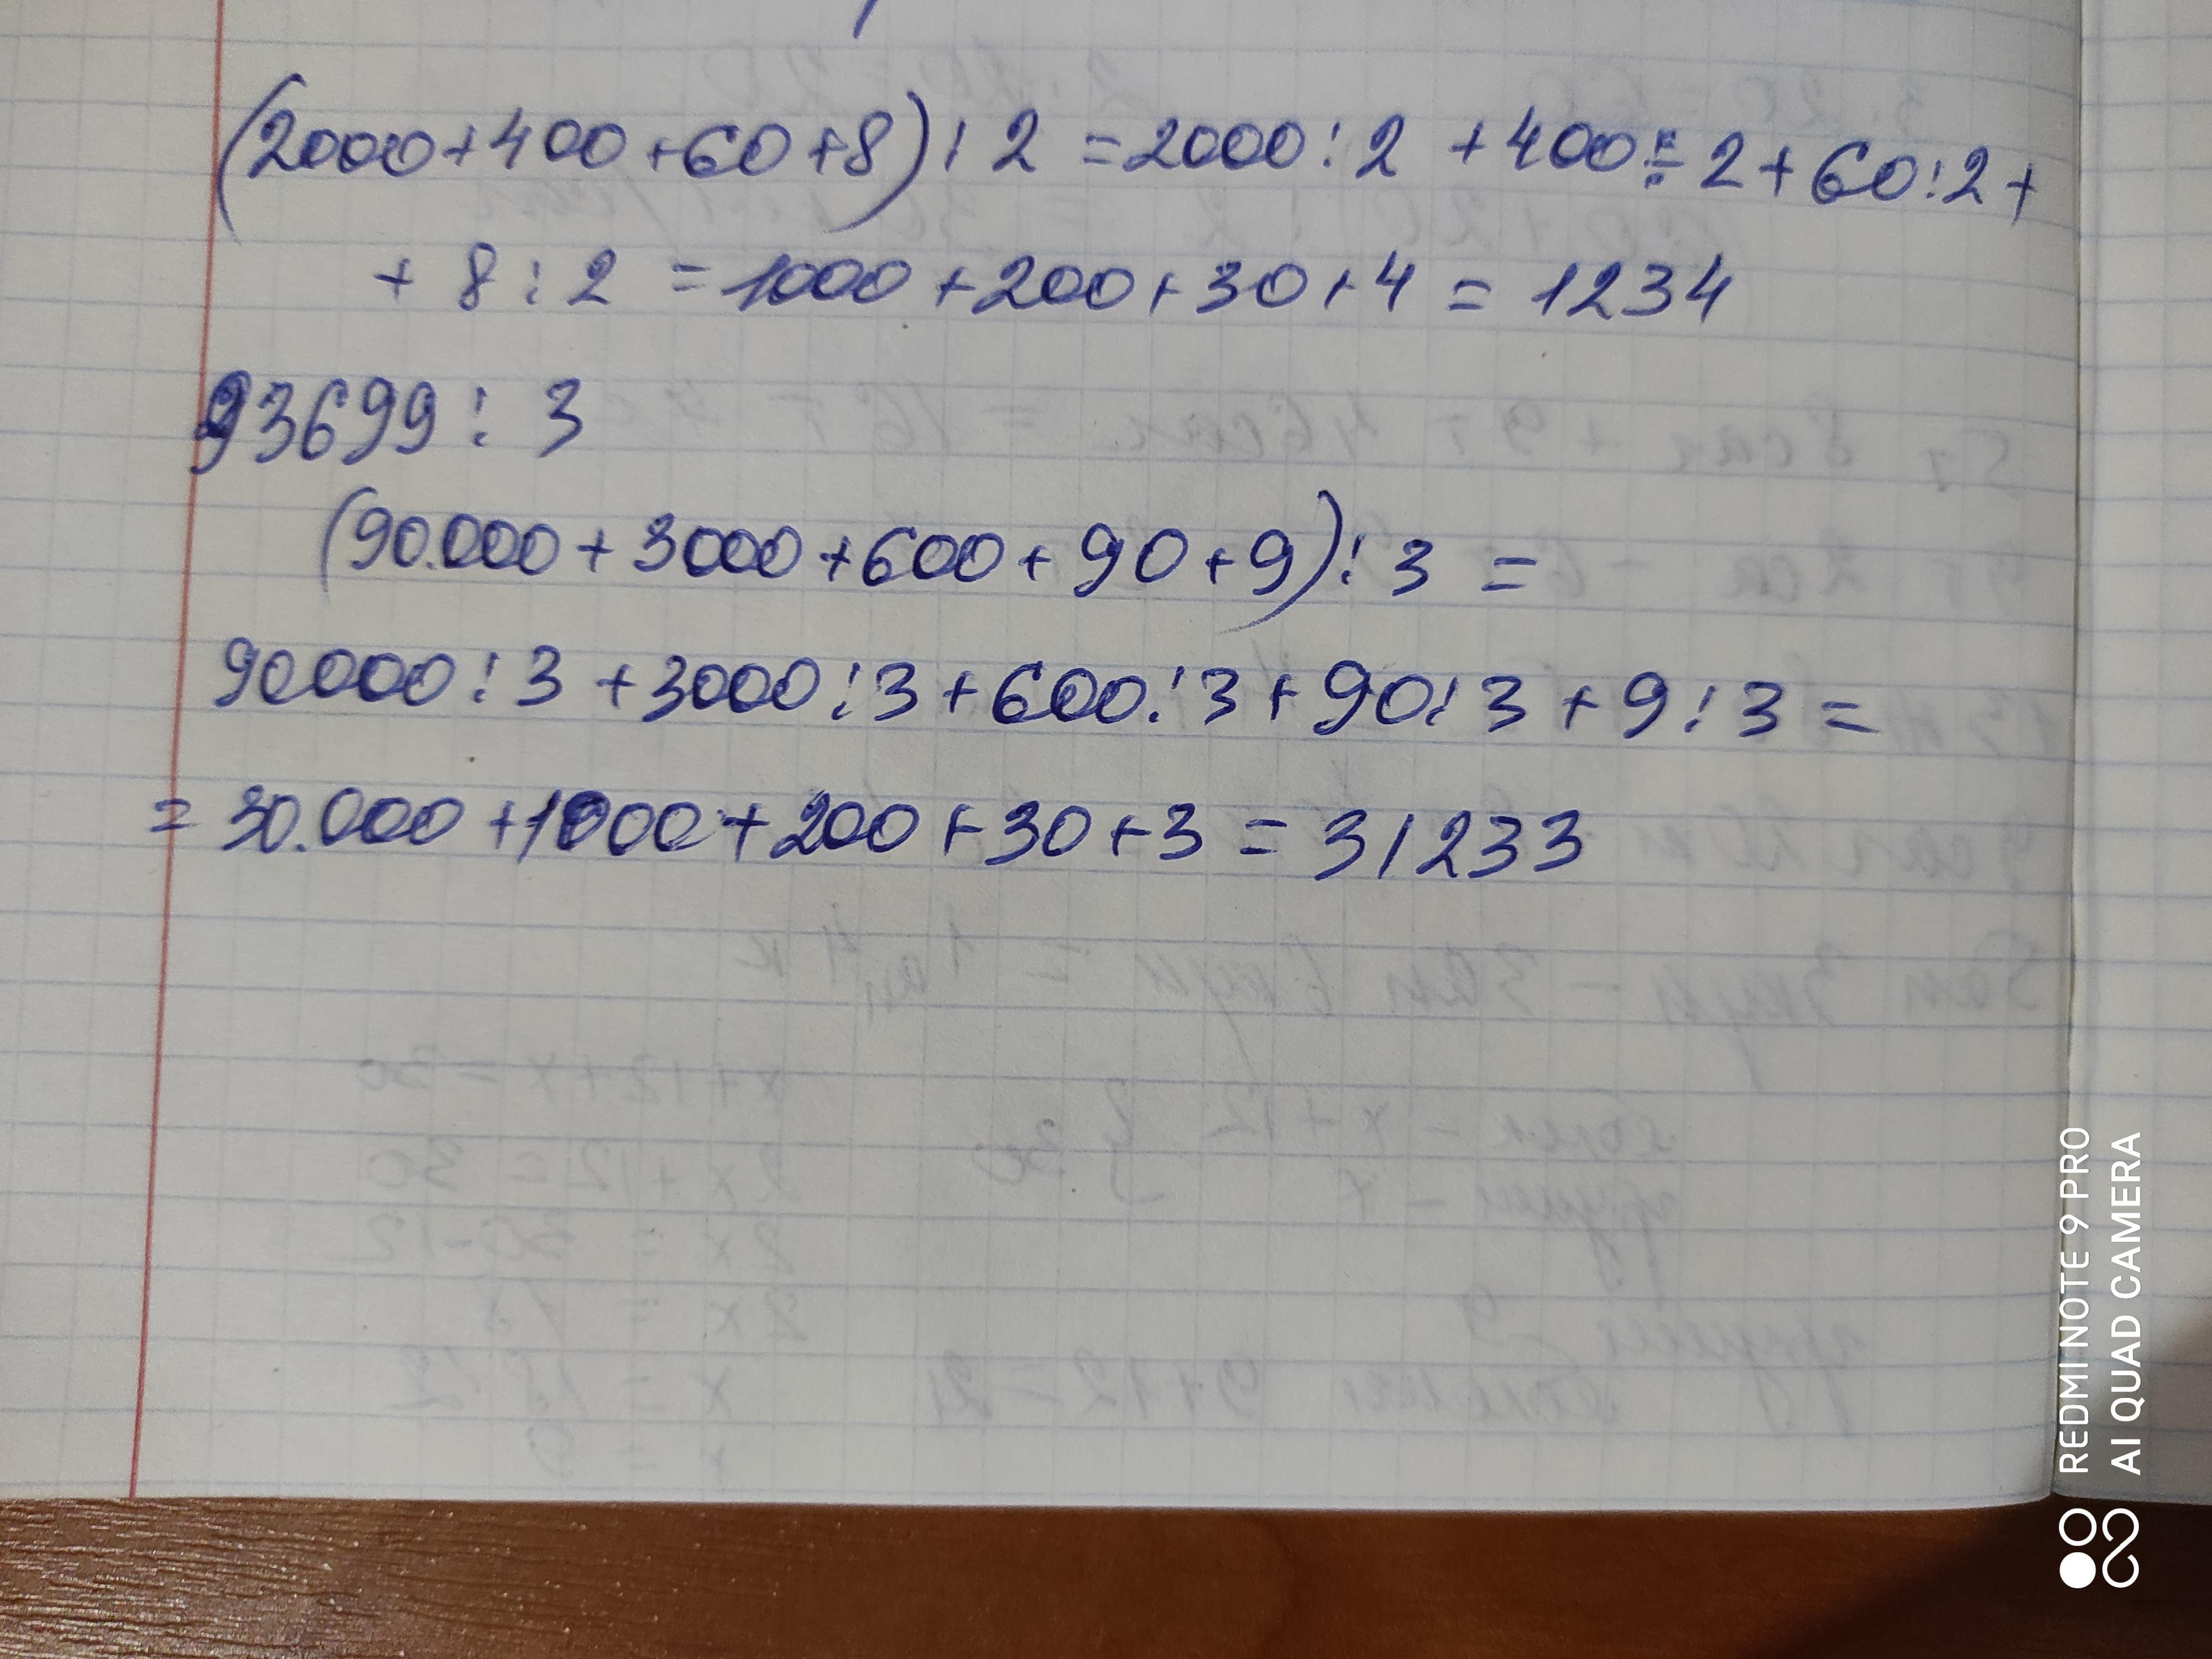 (2000+400+60+8):2=2000:2+400÷2+60:2+
+8:2=1000+200+30+4=1234
93699:3
(90.000+3000+600+90+9):3=
90000:3+3000:3+600:3+90:3+9:3=
=30.000+1000+200+30+3=31233
REDMI NOTE 9 PRO
AI QUAD CAMERA